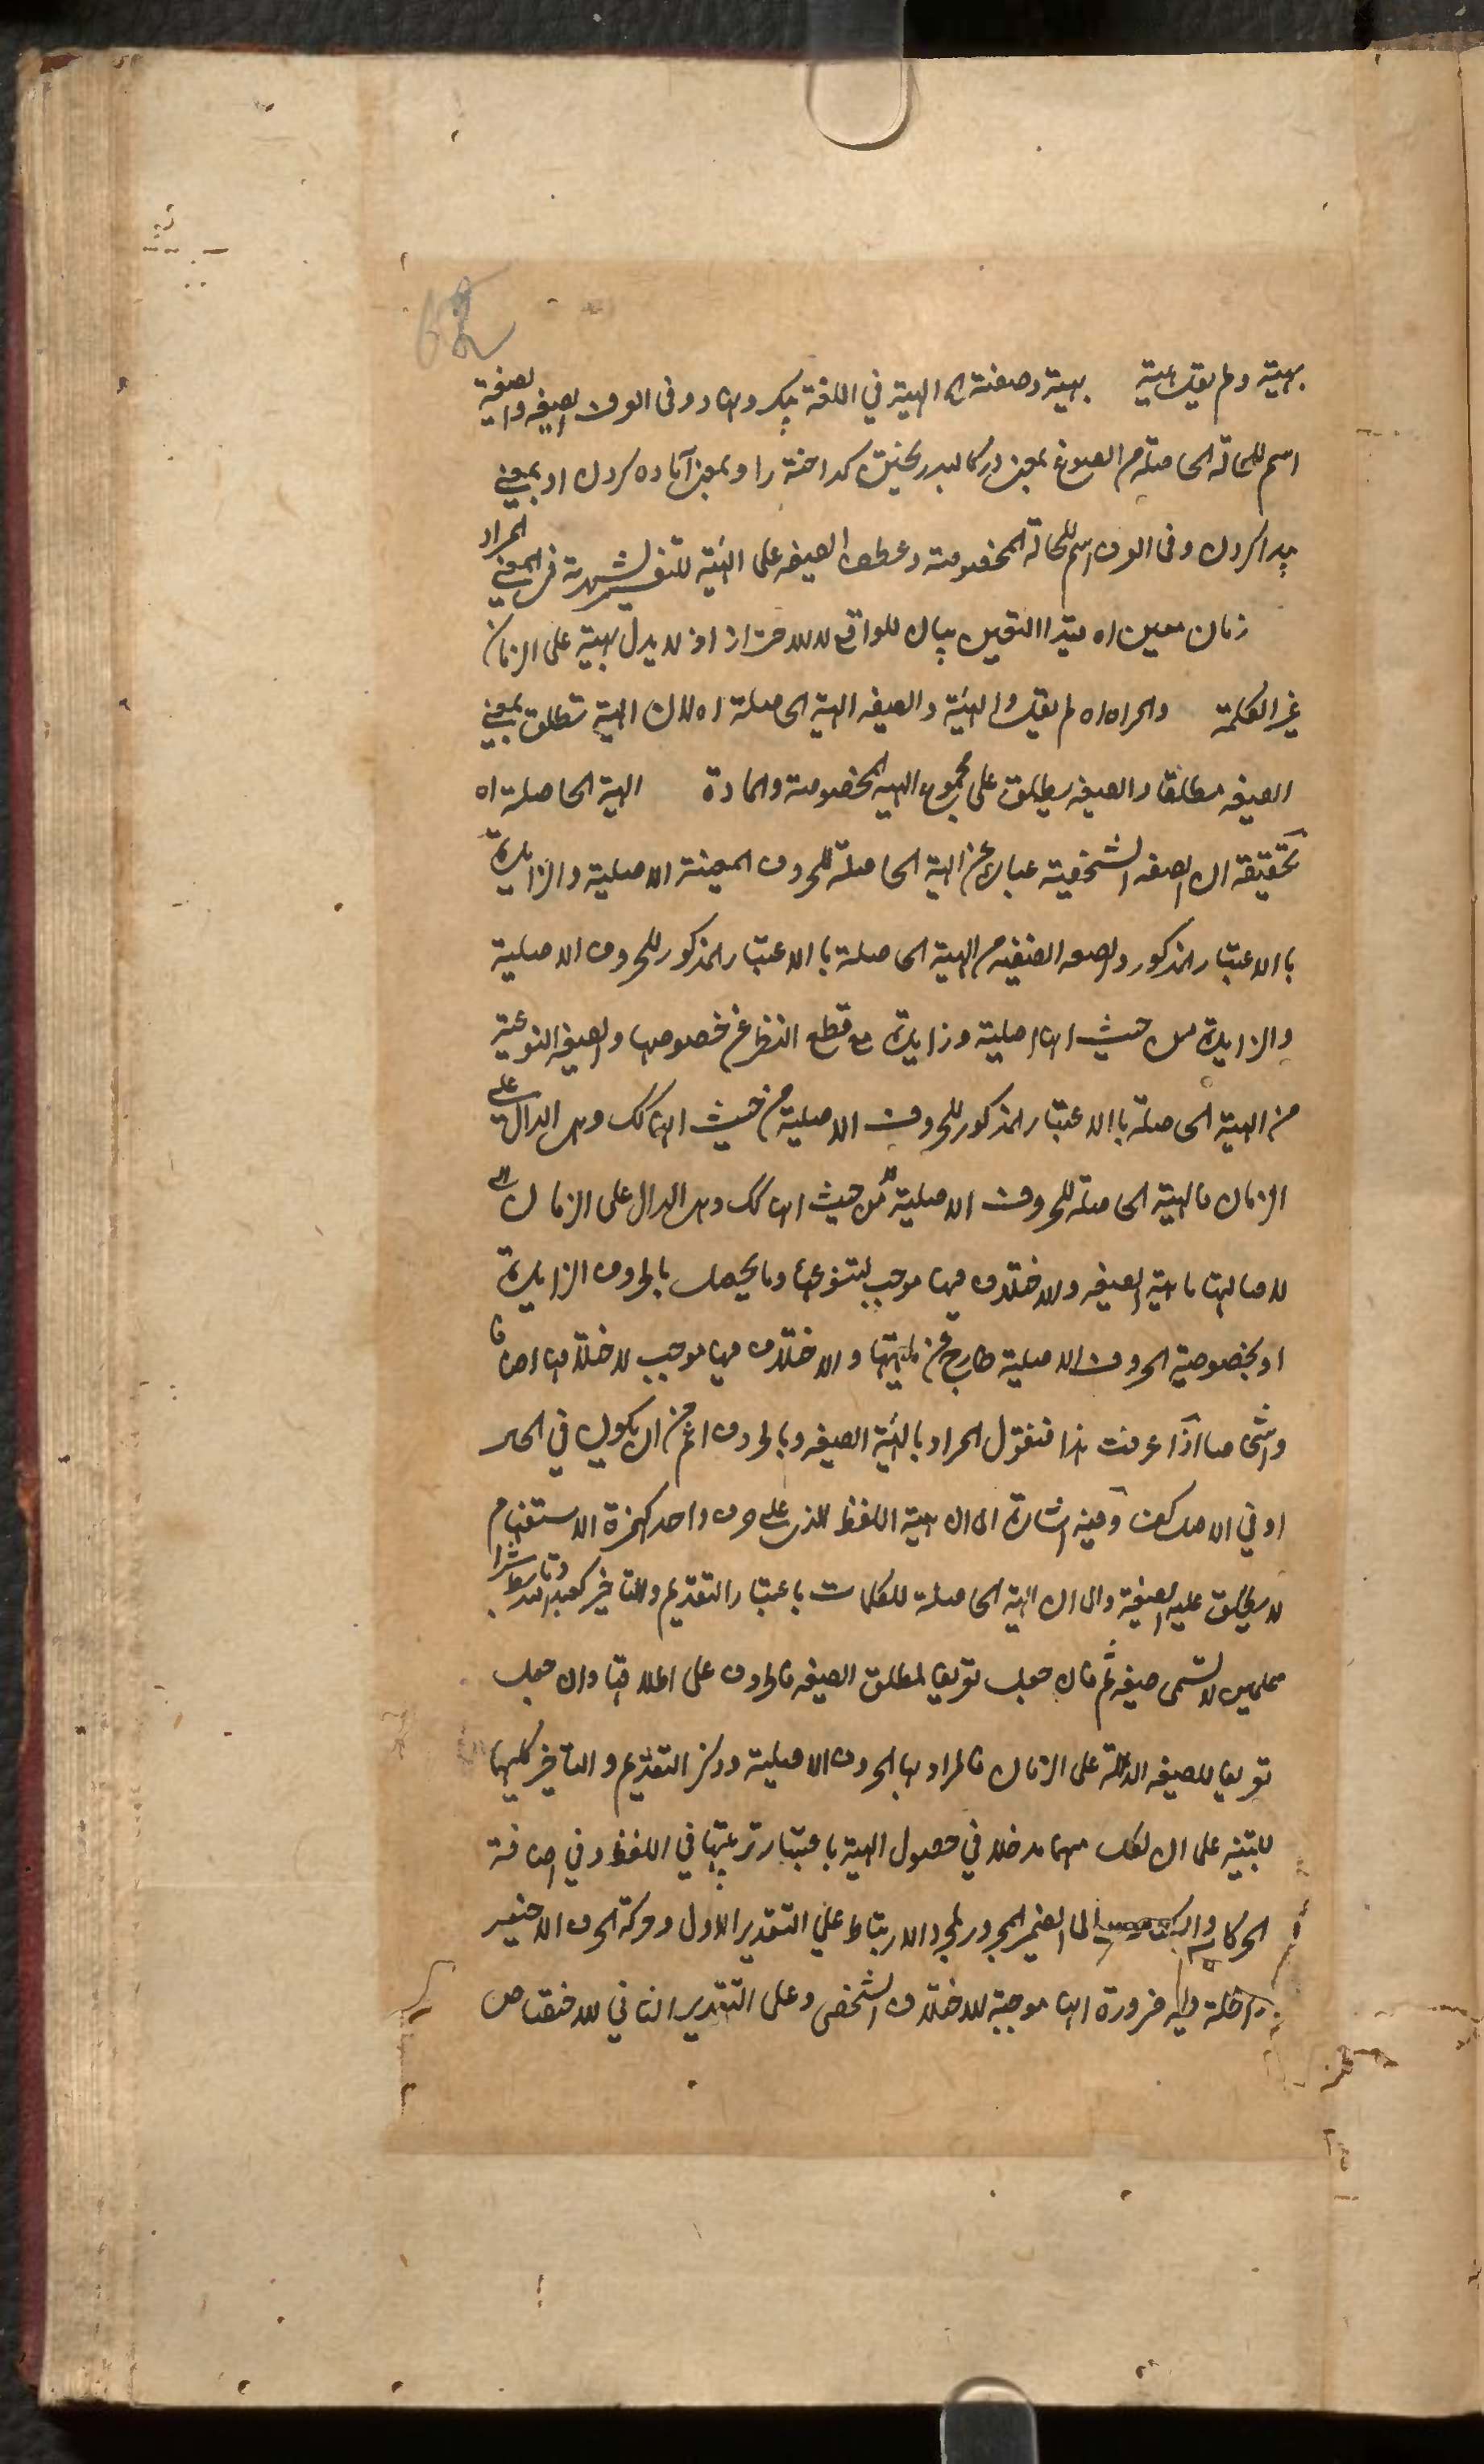 62
بهيئة ولم يقل عينة بهيئة وصفته اه الهيئة في اللغة پيكر ونهاد وفى العرف الصيغه والصيغة
اسم للحالة الحاصلة من الصوغ بمعنى در كالبد ريختن كداخته را وبمعنى آماده كردن او بمعنى
پيدا كردن وفى العرف اسم للحالة المخصوصة وعطف الصيغه على الهيئة للتفسير لشهرته في المعنى المراد
زمان معين اه قيد التعيين بيان للواقع لا للاحتراز اذ لا يدل بهيئة على الزمان
غير الكلمة والمراد اه لم يقل والهيئة والصيغه الهيئة الحاصلة اه لان الهيئة تطلق بمعنى
الصيغه مطلقا والصيغه يطلق على مجموع الهيئة المخصوصة والمادة الهيئة الحاصلة اه
تحقيقة ان الصيغه الشخصية عبارة عن الهيئة الحاصلة للحروف المعينة الاصلية والزايدة
باالاعتبار المذكور والصيغه الصنفية من الهيئة الحاصلة باالاعتبار المذكور للحروف الاصلية
والزايدة من حيث انها اصلية وزايدة مع قطع النظر عن خصوصها والصيغه النوعية
من الهيئة الحاصلة باالاعتبار المذكور للحروف الاصلية من حيث انها كك وهى الدال على
الزمان فالهيئة الحاصلة للحروف الاصلية من حيث انها كك وهى الدال على الزمان
لاصالتها ماهية الصيغه والاختلاف فيها موجب لتنوعها وما يحصل بالحروف الزايدة
او بخصوصية الحروف الاصلية خارج عن ماهيتها والاختلاف فيها موجب لاختلاف اصنافا
واشخاصا اذا عرفت هذا فنقول المراد بالهيئة الصيغه وبالحروف اعم من ان يكون في الحال
او في الاصل كقن وفيه اشارة الى ان هيئة اللفظ الذى على حرف واحد كهمزة الاستفهام
لا يطلق عليه الصيغة والى ان الهيئة الحاصلة للكلمات باعتبار التقديم والتاخير كعبد الله وتأبط شرا
علمين لا تسمى صيغه ثم ان جعل تعريفا لمطلق الصيغه فالحروف على اطلاقها وان جعل
تعريفا للصيغه الدالة على الزمان فالمراد بها الحروف الاصلية وذكر التقديم والتاخير كليهما
للتنبيه على ان لكل منهما مدخلا في حصول الهيئة باعتبار ترتيبها في اللفظ وفي اضافة
الحركات والسكنات الى الضمير المجرور لمجرد الارتباط على التقدير الاول وحركة الحرف الاخير
داخلة فيه ضرورة انها موجبة للاختلاف الشخصى وعلى التقدير الثاني للاختصاص